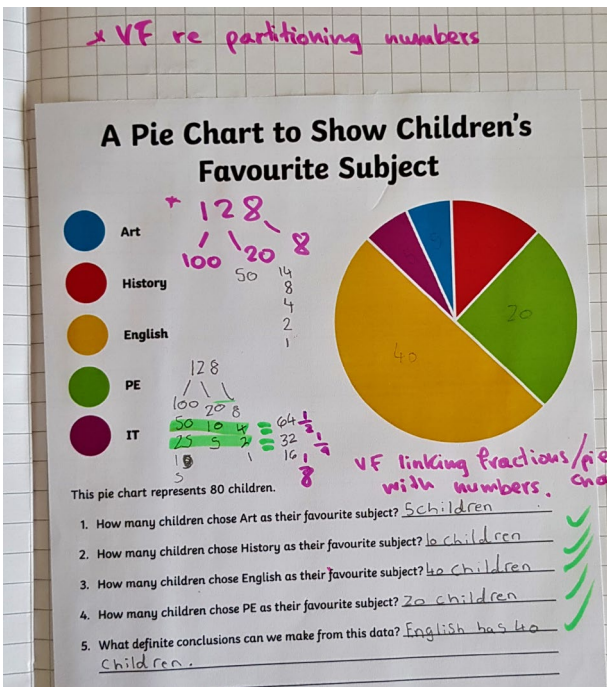 * VF re partitioning numbers
A Pie Chart to Show Children's
Favourite Subject
* 128
100 20 8
Art
History
English
PE
IT
50 14
8
4
2
1
20
40
128
100 20 8
50 10 4 = 64 1/2
25 5 2 = 32 1/4
1 16 1/8
5
VF linking fractions/pie
with numbers.
This pie chart represents 80 children.
1. How many children chose Art as their favourite subject? 5children
2. How many children chose History as their favourite subject? 10 children
3. How many children chose English as their favourite subject? 40 children
4. How many children chose PE as their favourite subject? 20 children
5. What definite conclusions can we make from this data? English has 40
children.